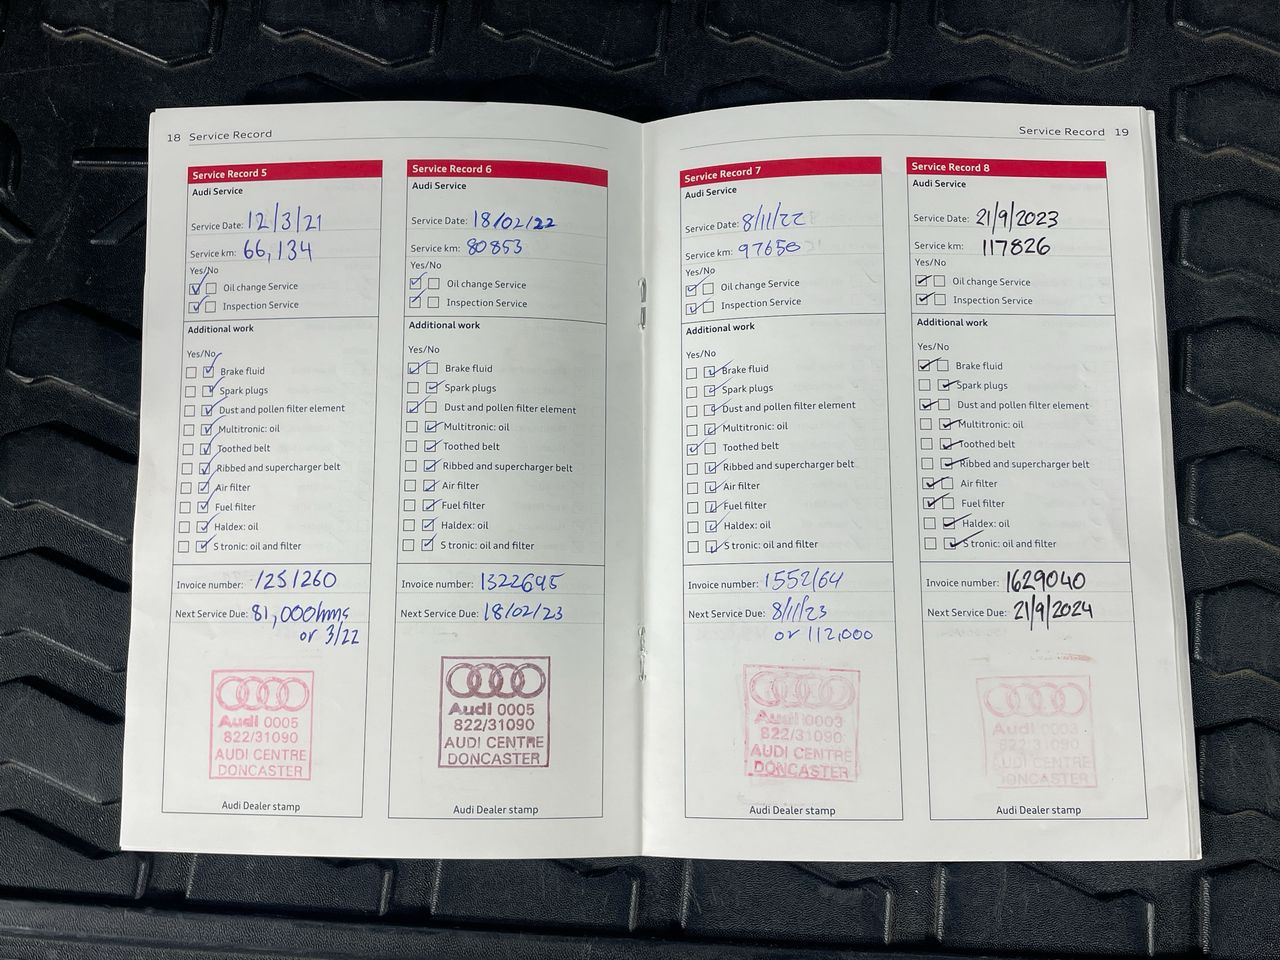 18 Service Record
Service Record 5
Audi Service
Service Date: 12/3/21
Service km: 66,134
Yes/No
Oil change Service
Inspection Service
Additional work
Yes/No
Brake fluid
Spark plugs
Dust and pollen filter element
Multitronic: oil
Toothed belt
Ribbed and supercharger belt
Air filter
Fuel filter
Haldex: oil
S tronic: oil and filter
Invoice number: 1251260
Next Service Due: 81,000kms
or 3/22
Audi 0005
822/31090
AUDI CENTRE
DONCASTER
Audi Dealer stamp
Service Record 6
Audi Service
Service Date: 18/02/22
Service km: 80853
Yes/No
Oil change Service
Inspection Service
Additional work
Yes/No
Brake fluid
Spark plugs
Dust and pollen filter element
Multitronic: oil
Toothed belt
Ribbed and supercharger belt
Air filter
Fuel filter
Haldex: oil
S tronic: oil and filter
Invoice number: 1322695
Next Service Due: 18/02/23
Audi 0005
822/31090
AUDI CENTRE
DONCASTER
Audi Dealer stamp
Service Record 19
Service Record 7
Audi Service
Service Date: 8/11/22
Service km: 97650
Yes/No
Oil change Service
Inspection Service
Additional work
Yes/No
Brake fluid
Spark plugs
Dust and pollen filter element
Multitronic: oil
Toothed belt
Ribbed and supercharger belt
Air filter
Fuel filter
Haldex: oil
S tronic: oil and filter
Invoice number: 1552164
Next Service Due: 8/11/23
or 112,000
Audi 0003
822/31090
AUDI CENTRE
DONCASTER
Audi Dealer stamp
Service Record 8
Audi Service
Service Date: 21/9/2023
Service km: 117826
Yes/No
Oil change Service
Inspection Service
Additional work
Yes/No
Brake fluid
Spark plugs
Dust and pollen filter element
Multitronic: oil
Toothed belt
Ribbed and supercharger belt
Air filter
Fuel filter
Haldex: oil
S tronic: oil and filter
Invoice number: 1629040
Next Service Due: 21/9/2024
Audi 0003
822/31090
AUDI CENTRE
DONCASTER
Audi Dealer stamp